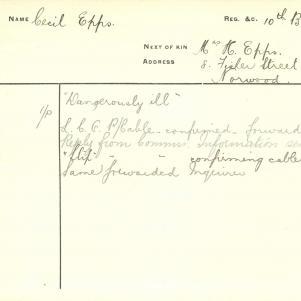 NAME Cecil Epps. REG. &C. 10th B
NEXT OF KIN Mrs H. Epps.
ADDRESS 8. Fisher Street
Norwood.
"Dangerously ill"
L.C.C. P/Cable - confirmed - Forward
Reply from Commns. Information se
" - " confirming cable
Same forwarded Inquirer